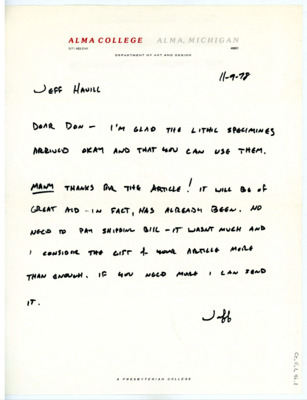 ALMA COLLEGE ALMA, MICHIGAN
DEPARTMENT OF ART AND DESIGN
11-9-78
JEFF HAVILL
DEAR DON - I'M GLAD THE LITHIC SPECIMINES
ARRIVED OKAY AND THAT YOU CAN USE THEM.
MANY THANKS FOR THE ARTICLE! IT WILL BE OF
GREAT AID - IN FACT, HAS ALREADY BEEN. NO
NEED TO PAY SHIPPING BILL - IT WASNT MUCH AND
I CONSIDER THE GIFT OF YOUR ARTICLE MORE
THAN ENOUGH. IF YOU NEED MORE I CAN SEND
IT.
Jeff
A PRESBYTERIAN COLLEGE